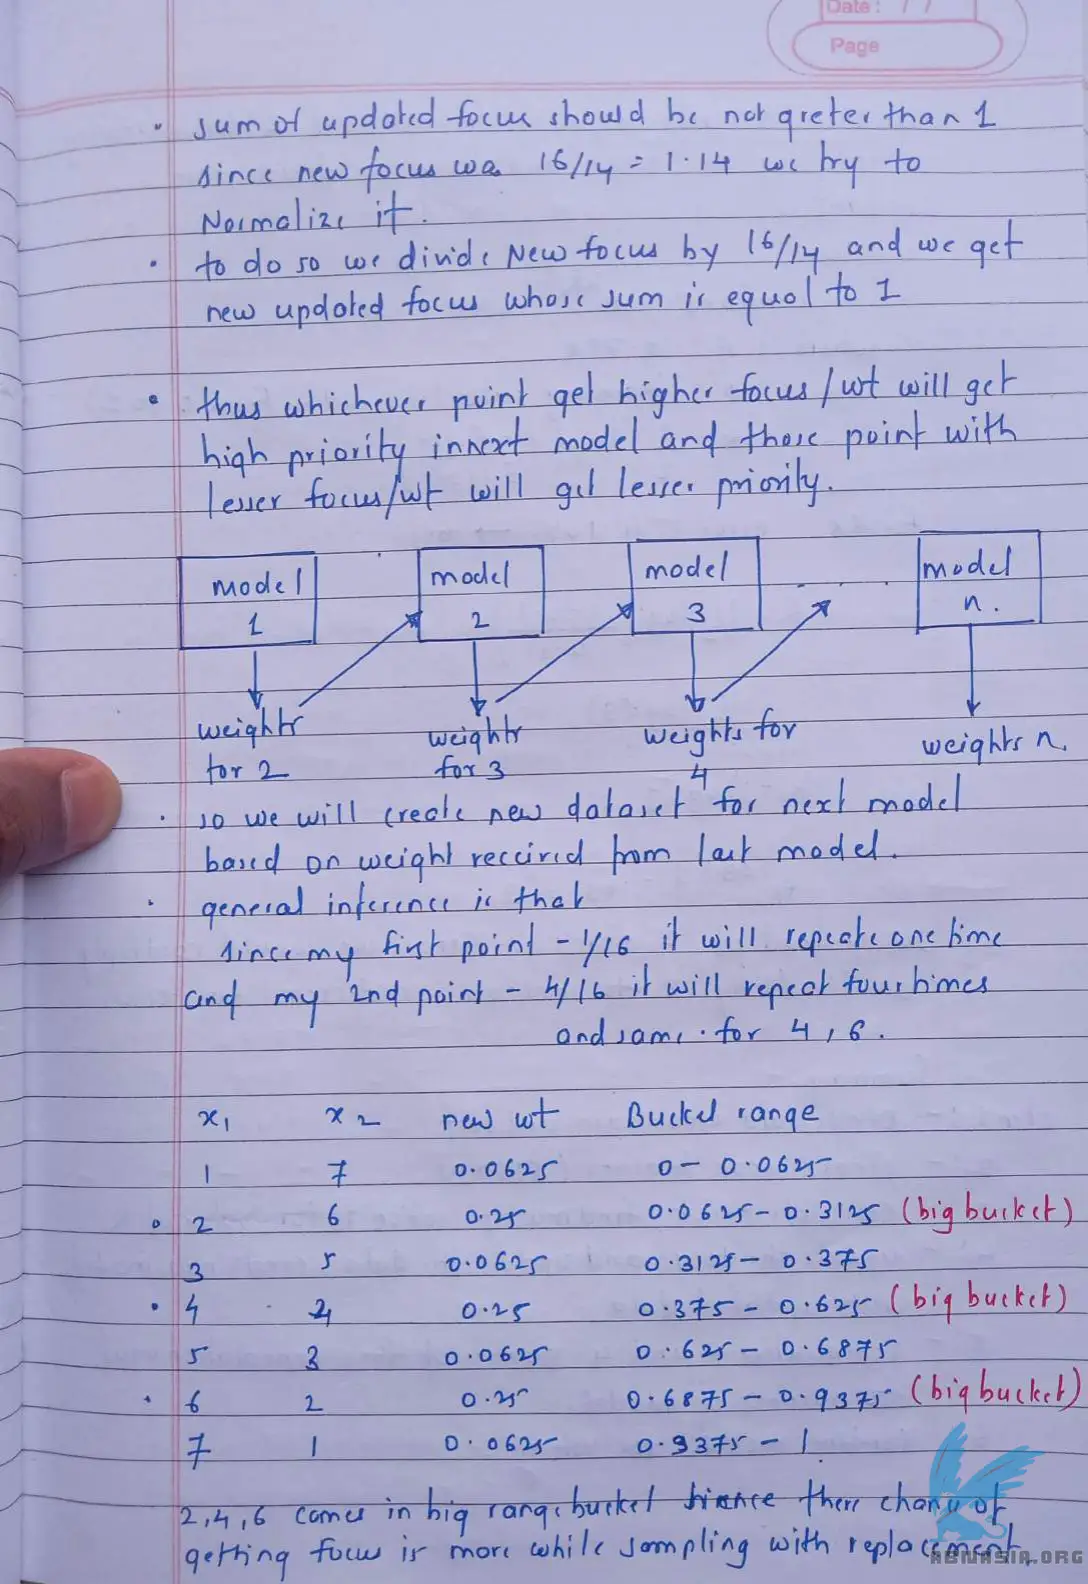 Date : / /
Page
sum of updated focus should be not greter than 1
since new focus was 16/14 = 1.14 we try to
Normalize it.
to do so we divide New focus by 16/14 and we get
new updated focus whose sum is equal to 1
thus whichever point get higher focus/wt will get
high priority in next model and those point with
lesser focus/wt will get lesser priority.
model 1 model 2 model 3 . . . model n.
weights for 2 weights for 3 weights for 4 weights n.
so we will create new dataset for next model
based on weight received from last model.
general inference is that
since my first point - 1/16 it will repeate one time
and my 2nd point - 4/16 it will repeat four times
and same for 4, 6.
x1 x2 new wt Bucket range
1 7 0.0625 0 - 0.0625
2 6 0.25 0.0625 - 0.3125 (big bucket)
3 5 0.0625 0.3125 - 0.375
4 4 0.25 0.375 - 0.625 (big bucket)
5 3 0.0625 0.625 - 0.6875
6 2 0.25 0.6875 - 0.9375 (big bucket)
7 1 0.0625 0.9375 - 1
2,4,6 comes in big range bucket hence there chance of
getting focus is more while sampling with replacement.
ABNASIA.ORG